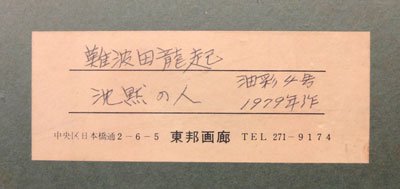 難波田龍起
沈黙の人 油彩4号
1979年作
中央区日本橋通2-6-5 東邦画廊 TEL 271-9174